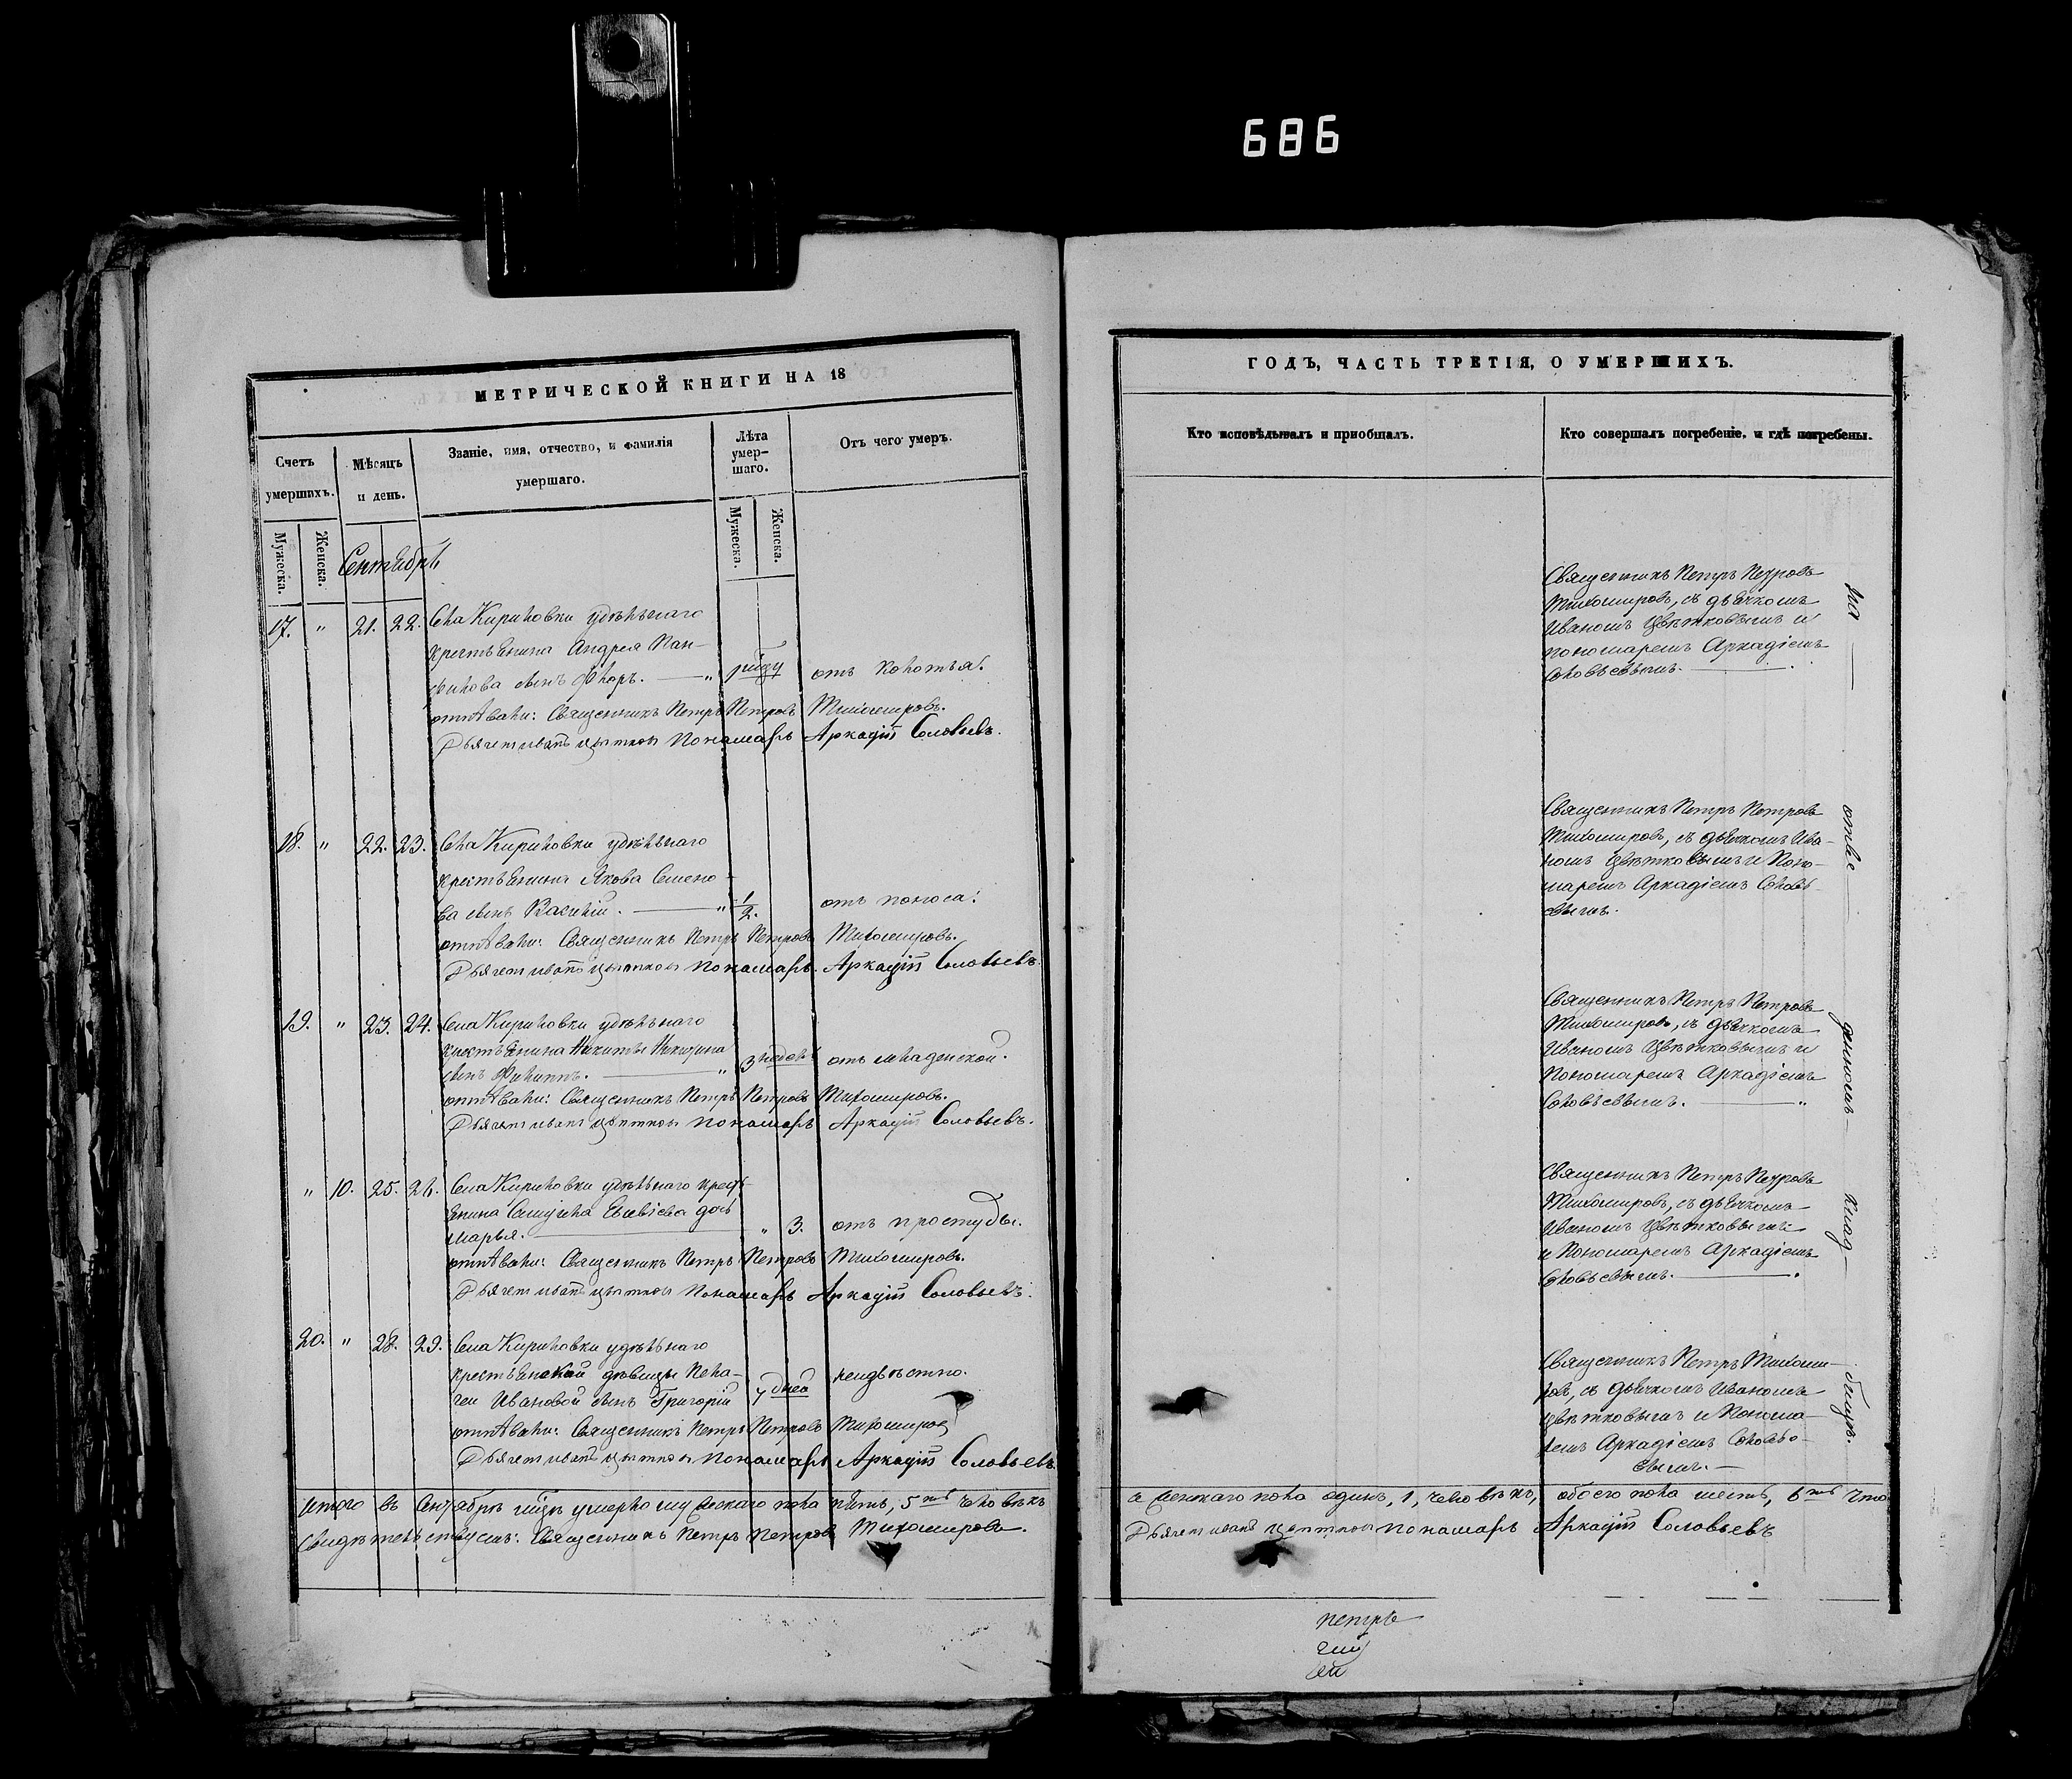 686
МЕТРИЧЕСКОЙ КНИГИ НА 18
Счетъ умершихъ.
Мужеска.
Женска.
Мѣсяцъ и день.
Званіе, имя, отчество, и фамилія умершаго.
Лѣта умершаго.
Мужеска.
Женска.
Отъ чего умеръ.
Сентябрь
17. " 21. 22. Села Кириловки удѣльнаго
крестьянина Андрея Пан-
филова сынъ Флоръ. — " 1 году отъ колотья.
отпѣвали: Священникъ Петръ Петровъ Тихомировъ.
Дьячет иванъ цветков Понамарь Аркадій Соловьевъ.
18. " 22. 23. Села Кириловки удѣльнаго
крестьянина Якова Семено-
ва сынъ Василій. — " 1/2. отъ поноса.
отпѣвали: Священникъ Петръ Петровъ Тихомировъ.
Дьячет иванъ цветков понамарь Аркадій Соловьевъ.
19. " 23. 24. Села Кириловки удѣльнаго
крестьянина Никиты
сынъ Филиппъ. — " 3 недел. отъ младенской.
отпѣвали: Священникъ Петръ Петровъ Тихомировъ.
Дьячет иванъ цветков понамарь Аркадій Соловьевъ.
" 10. 25. 26. Села Кириловки удѣльнаго крест
янина Самуила Евсевіева дочь
Марья. — " 3. отъ простуды.
отпѣвали: Священникъ Петръ Петровъ Тихомировъ.
Дьячет иванъ цветков Понамарь Аркадій Соловьевъ.
20. " 28. 29. Села Кириловки удѣльнаго
крестьянской дѣвицы Пела-
геи Ивановой сынъ Григорій 7 дней неизвѣстно.
отпѣвали: Священникъ Петръ Петровъ Тихомиров
Дьячет иванъ цветков понамарь Аркадій Соловьевъ
Итого въ Сентябрѣ мцѣ умерло мужескаго пола пять, 5ть человѣкъ
Свидѣтельствуемъ: Священникъ Петръ Петровъ Тихомировъ.
ГОДЪ, ЧАСТЬ ТРЕТІЯ, О УМЕРШИХЪ.
Кто исповѣдывалъ и пріобщалъ.
Кто совершалъ погребеніе, и гдѣ погребены.
Священникъ Петръ Петровъ
Тихомировъ, съ дьячкомъ
Иваномъ Цвѣтковымъ и
пономаремъ Аркадіемъ
Соловьевымъ.
Священникъ Петръ Петровъ
Тихомировъ, съ дьячкомъ Ива-
номъ Цвѣтковымъ и Поно-
маремъ Аркадіемъ Соловь-
евымъ.
Священникъ Петръ Петровъ
Тихомировъ, съ дьячкомъ
Иваномъ Цвѣтковымъ и
Пономаремъ Аркадіемъ
Соловьевымъ. — "
Священникъ Петръ Петровъ
Тихомировъ, съ дьячкомъ
Иваномъ Цвѣтковымъ
и Пономаремъ Аркадіемъ
Соловьевымъ.
Священникъ Петръ Тихоми-
ровъ, съ дьячкомъ Иваномъ
Цвѣтковымъ и Понома-
ремъ Аркадіемъ Соловьe-
вымъ.
на — отве — денномъ — клад — бищѣ.
а женскаго пола одинъ, 1, человѣкъ, обоего пола шесть, 6ть что
Дьячет иванъ цветков понамарь Аркадій Соловьевъ
петръ